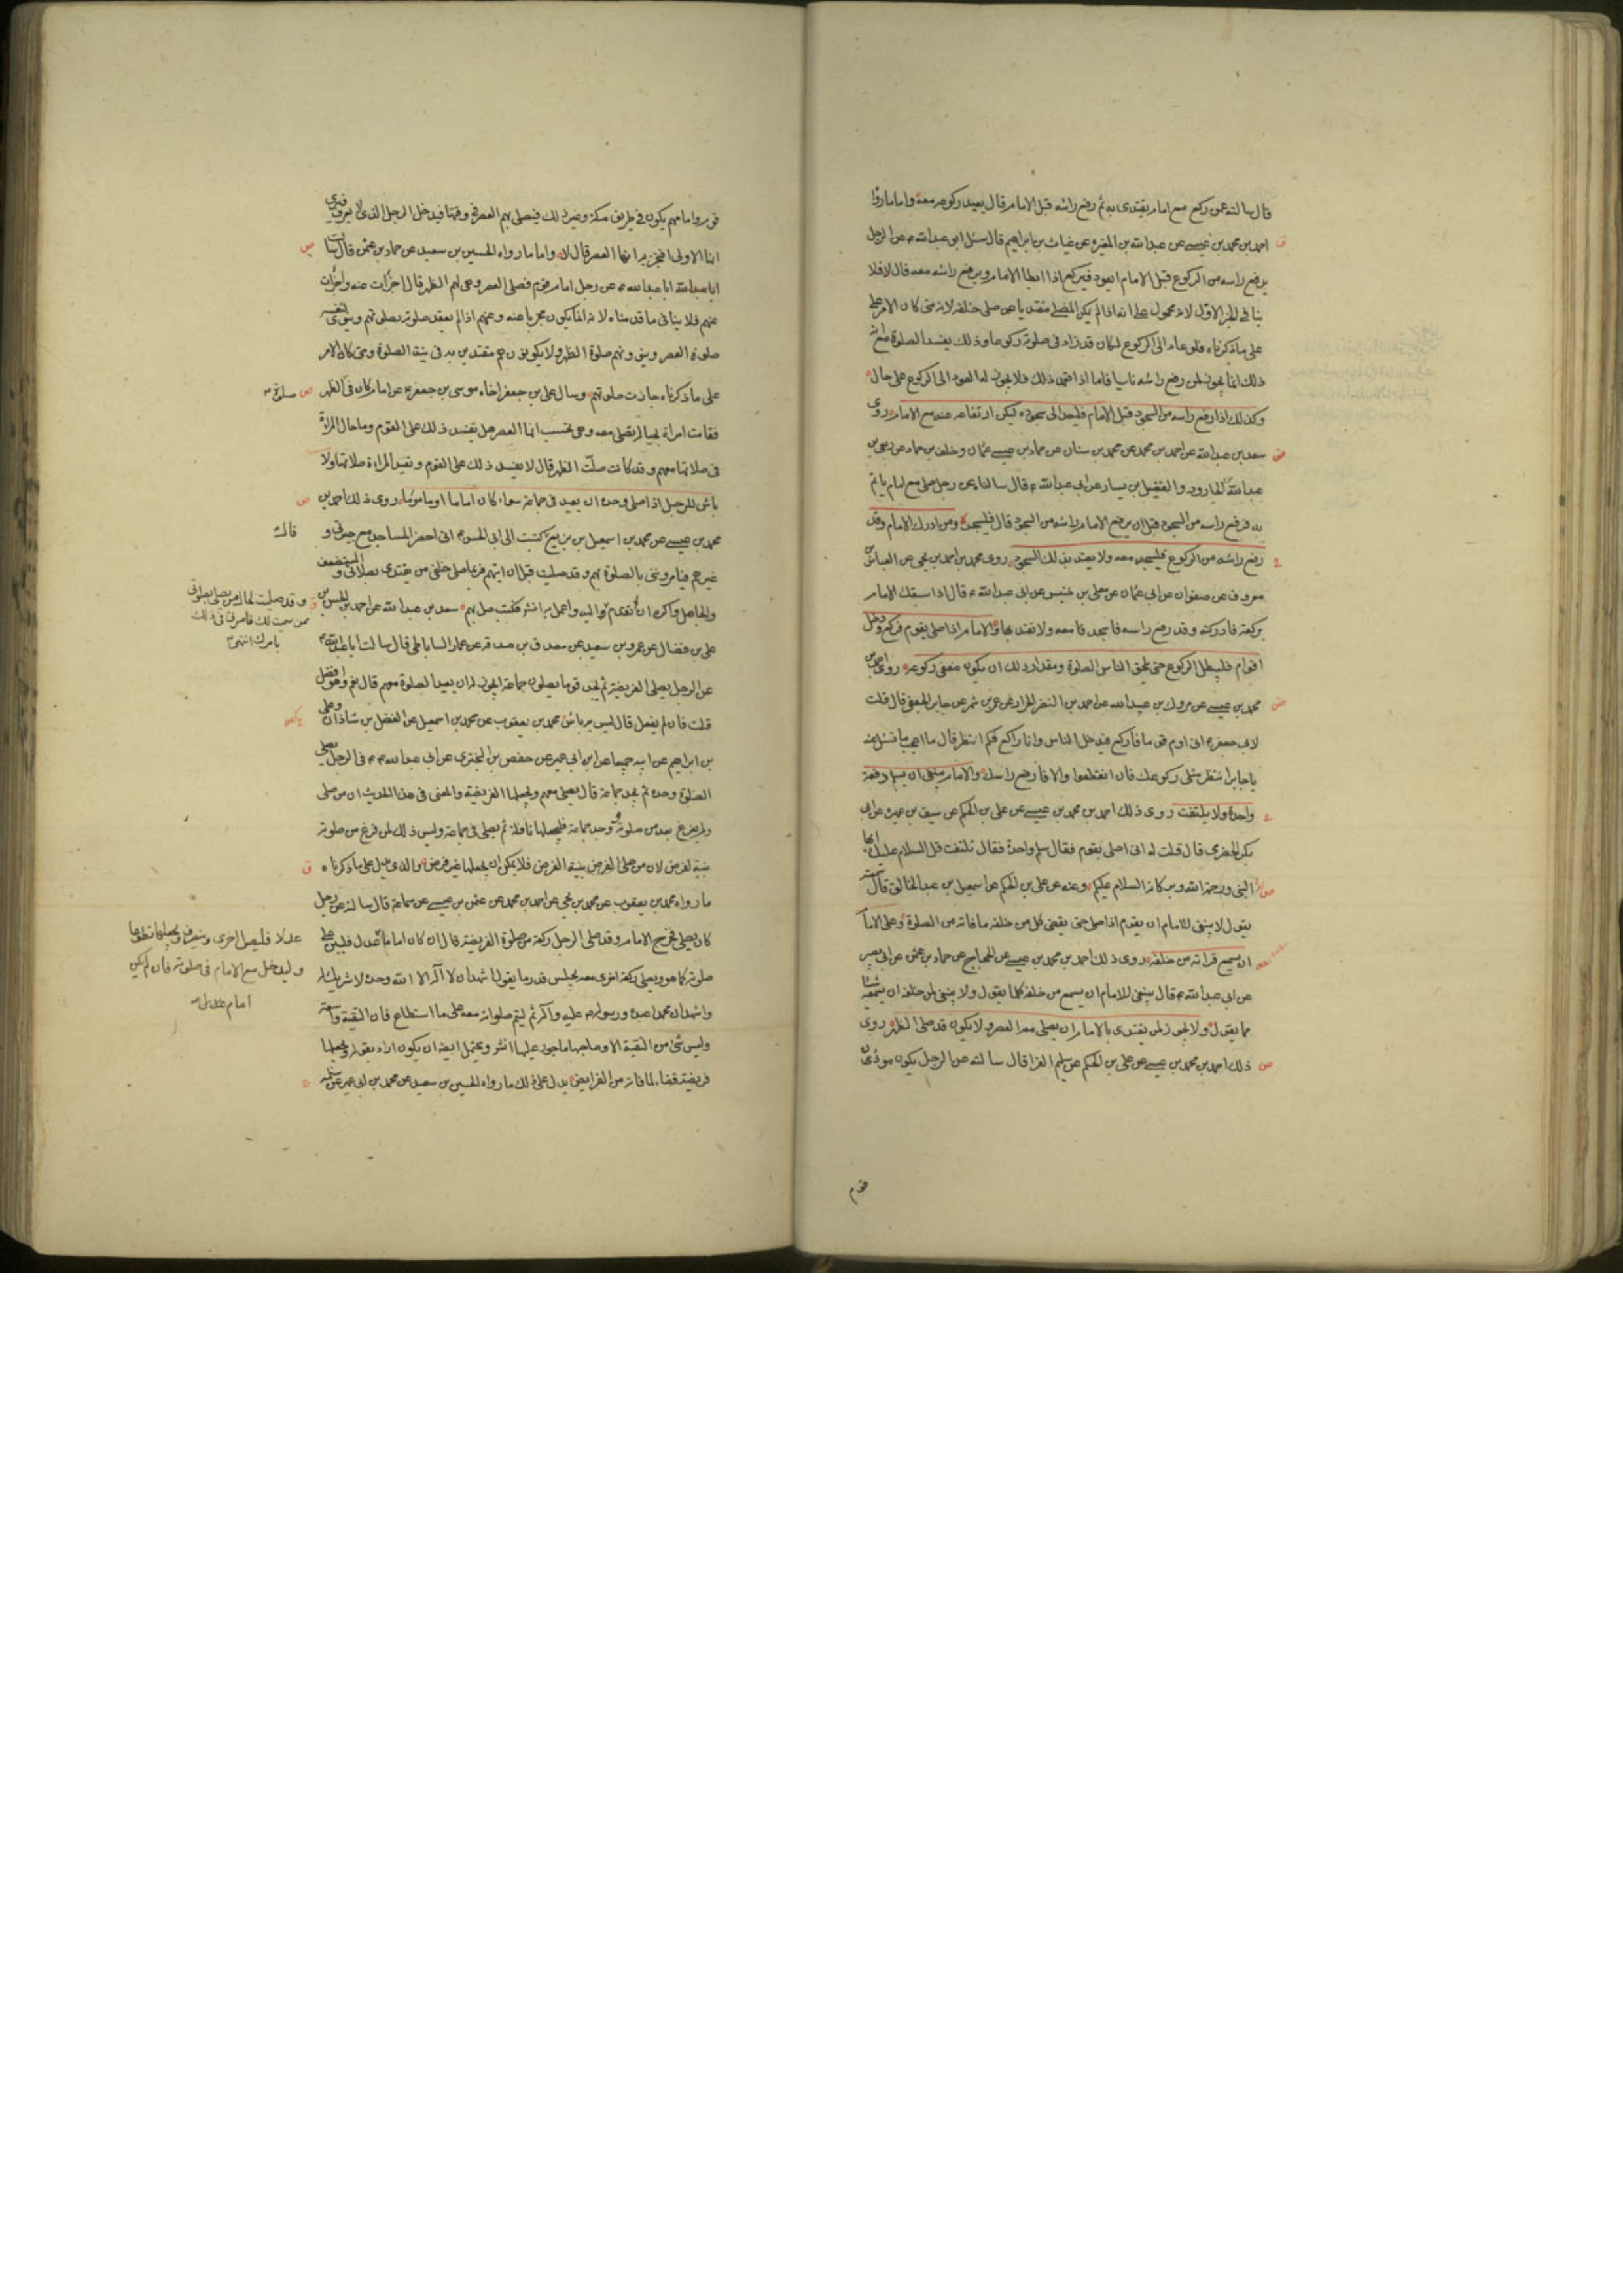 قال سالته عمن ركع مع امام يقتدى به ثم رفع راسه قبل الامام قال يعيد ركوعه معه واما ما رواه
احمد بن محمد بن عيسى عن عبد الله بن المغيرة عن غياث بن ابراهيم قال سئل ابو عبد الله ع عن الرجل
يرفع راسه من الركوع قبل الامام ايعود فيركع اذا ابطا الامام ويرفع راسه معه قال لا فلا
ينافى الخبر الاول لانه محمول على انه اذا لم يكن المصلى مقتديا بمن صلى خلفه لانه متى كان الامر على
ما ذكرناه فلو عاد الى الركوع لكان قد زاد فى صلوته ركوعا وذلك يفسد الصلوة مع انه
ذلك انما يجوز لمن رفع راسه ناسيا فاما اذا تعمد ذلك فلا يجوز له العود الى الركوع على حال
وكذلك اذا رفع راسه من السجود قبل الامام فليعد الى سجوده ليكن ارتفاعه عنه مع الامام روى
سعد بن عبد الله عن احمد بن محمد عن محمد بن سنان عن حماد بن عثمان وخلف بن حماد عن ربعى بن
عبد الله بن الجارود والفضيل بن يسار عن ابى عبد الله ع قال سالناه عن رجل صلى مع امام ياتم
به فرفع راسه من السجود قبل ان يرفع الامام راسه من السجود قال فليسجد ومن ادرك الامام وقد
رفع راسه من الركوع فليسجد معه ولا يعتد بذلك السجود روى محمد بن احمد بن يحيى عن العباس بن
معروف عن صفوان عن ابى عثمان عن معلى بن خنيس عن ابى عبد الله ع قال اذا سبقك الامام
بركعة فادركته وقد رفع راسه فاسجد معه ولا تعتد بها والامام اذا صلى بقوم فركع ودخل
اقوام فليطل الركوع حتى يلحق الناس الصلوة ومقدار ذلك ان يكون ضعفى ركوعه روى احمد بن
محمد بن عيسى عن مروك بن عبيد الله عن احمد بن النضر الخزاز عن عمرو بن شمر عن جابر الجعفى قال قلت
لابى جعفر ع انى اؤم قوما فاركع فيدخل الناس وانا راكع فكم انتظر قال ما اعجب ما تسئل عنه
يا جابر انتظر مثلى ركوعك فان انقطعوا والا فارفع راسك والامام ينبغى ان يسلم دفعة
واحدة ولا يلتفت روى ذلك احمد بن محمد بن عيسى عن على بن الحكم عن سيف بن عميرة عن ابى
بكر الحضرمى قال قلت له انى اصلى بقوم فقال سلم واحدة فقال تلتفت قل السلام عليك ايها
النبى ورحمة الله وبركاته السلام عليكم وعنه عن على بن الحكم عن اسمعيل بن عبد الخالق قال سمعته
يقول لا ينبغى للامام ان يقوم اذا صلى حتى يقضى كل من خلفه ما فاته من الصلوة وعلى الامام
ان يسمع قراته من خلفه روى ذلك احمد بن محمد بن عيسى عن الحجاج عن حماد بن عثمن عن ابى بصير
عن ابى عبد الله ع قال ينبغى للامام ان يسمع من خلفه كلما يقول ولا ينبغى لمن خلفه ان يسمعه شيئا
مما يقول ولا يجوز لمن يقتدى بالامام ان يصلى معه العصر ولا يكون قد صلى الظهر روى
ذلك احمد بن محمد بن عيسى عن على بن الحكم عن سليم الفرا قال سالته عن الرجل يكون موذن
قوم
قوم واما مهم يكون فى طريق مكة وغير ذلك فيصلى بهم العصر فى وقتها فيدخل الرجل الذى لا يعرف فيرى
انها الاولى افتجزيه انها العصر قال لا واما ما رواه الحسين بن سعيد عن حماد بن عثمن قال سالت
ابا عبد الله ع عن رجل امام قوم فصلى العصر وهى لهم الظهر قال اجزات عنه واجزات
عنهم فلا ينافى ما قدمناه لانه انما يكون مجزيا عنه وعنهم اذا لم يعقد صلوته بصلوتهم وينوى لنفسه
صلوة العصر وينوونهم صلوة الظهر ولا يكونون هم مقتدين به فى نية الصلوة ومتى كان الامر
على ما ذكرناه جازت صلوتهم وسال على بن جعفر اخاه موسى بن جعفر ع عن امام كان فى الظهر
فقامت امراة بحياله تصلى معه وهى تحسب انها العصر هل يفسد ذلك على القوم وما حال المراة
فى صلاتها معهم وقد كانت صلت الظهر قال لا يفسد ذلك على القوم وتعيد المراة صلاتها ولا
باس للرجل اذا صلى وحده ان يعيد فى جماعة سواء كان اماما او ماموما روى ذلك احمد بن
محمد بن عيسى عن محمد بن اسمعيل بن بزيع كتبت الى ابى الحسن ع انى احضر المساجد مع جيرتى و
غيرهم فيامرونى بالصلوة بهم وقد صليت قبل ان اتيهم فربما صلى خلفى من يقتدى بصلاتى والمستضعف
والجاهل واكره ان اتقدم
على بن فضال عن عمرو بن سعيد عن مصدق بن صدقة عن عمار الساباطى قال سالت ابا عبد الله ع
عن الرجل يصلى الفريضة ثم يجد قوما يصلون جماعة ايجوز له ان يعيد الصلوة معهم قال نعم وهو افضل
قلت فان لم يفعل قال ليس به باس محمد بن يعقوب عن محمد بن اسمعيل عن الفضل بن شاذان وعلى
بن ابراهيم عن ابيه جميعا عن ابن ابى عمير عن حفص بن البخترى عن ابى عبد الله ع فى الرجل يصلى
الصلوة وحده ثم يجد جماعة قال يصلى معهم ويجعلها الفريضة والمعنى فى هذا الحديث ان من صلى
ولم يفرغ بعد من صلوته ووجد جماعة فليجعلها نافلة ثم يصلى فى جماعة وليس ذلك لمن فرغ من صلوته
بنية الفرض لان من صلى الفرض بنية الفرض فلا يمكن ان يجعلها غير فرض والذى يدل على ما ذكرناه
ما رواه محمد بن يعقوب عن محمد بن يحيى عن احمد بن محمد عن عثمن بن عيسى عن سماعة قال سالته عن رجل
كان يصلى فخرج الامام وقد صلى الرجل ركعة من صلوة الفريضة قال ان كان اماما عدل فليبن على
صلوته كما هو ويصلى ركعة اخرى معه يجلس قدر ما يقول اشهد ان لا اله الا الله وحده لا شريك له
واشهد ان محمدا عبده ورسوله صلى الله عليه واله ثم ليتم صلوته معه على ما استطاع فان التقية واسعة
وليس شئ من التقية الا وصاحبها ماجور عليها انش ويحتمل ايضا ان يكون اراد بقوله ويجعلها
فريضة قضاء لما فاته من الفرايض يدل على ذلك ما رواه الحسين بن سعيد عن محمد بن ابى عمير عن سلمة
صلوة
قاله
وقد صليت
عدلا فليصل اخرى وينصرف ويجعلهما تطوعا
وليدخل مع الامام فى صلوته فان لم يكن
امام عدل